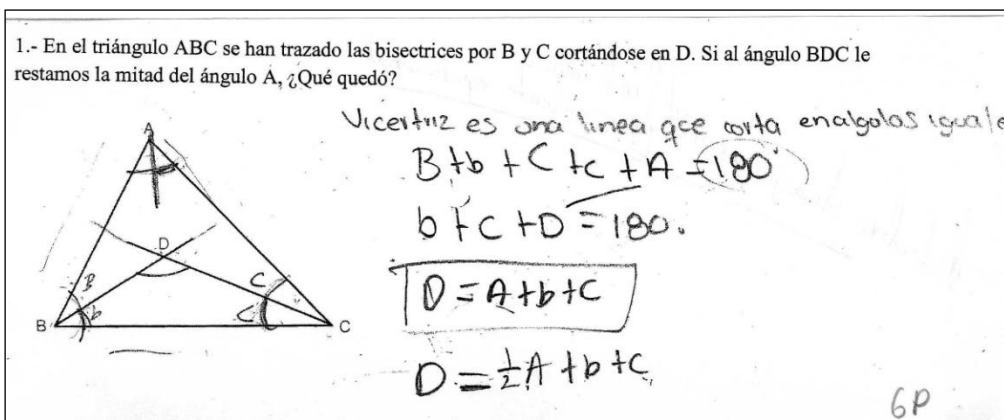 1.- En el triángulo ABC se han trazado las bisectrices por B y C cortándose en D. Si al ángulo BDC le
restamos la mitad del ángulo A, ¿Qué quedó?
Vicertriz es una linea qce corta enalgolos iguale
B+b+C+c+A=180°
b+c+D=180.
D=A+b+c
D=½A+b+c
A
D
B
b
C
C
B
C
6P